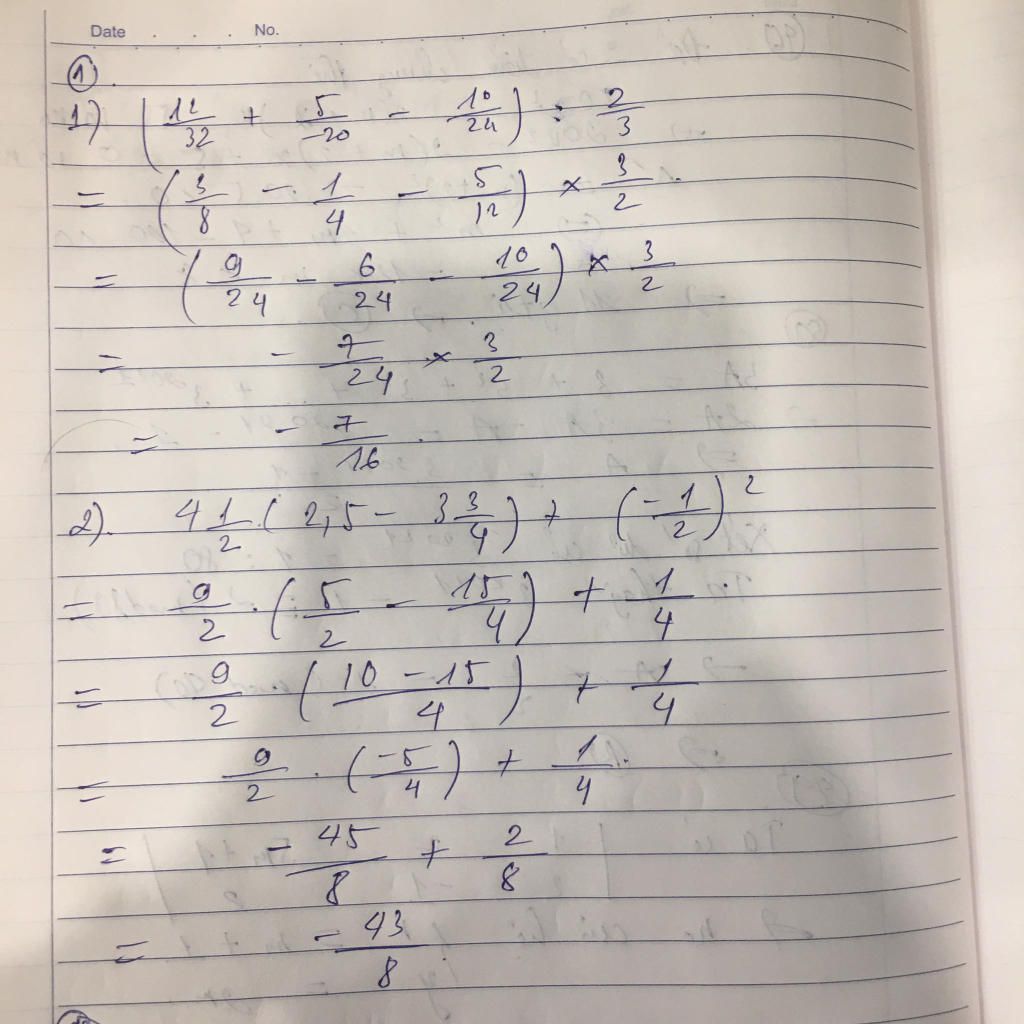 Date . . . . No.
①.
1) (12/32 + 5/-20 - 10/24) : 2/3
= (3/8 - 1/4 - 5/12) × 3/2.
= (9/24 - 6/24 - 10/24) × 3/2
= - 7/24 × 3/2
= - 7/16.
2). 4 1/2 . (2,5 - 3 3/4) + (- 1/2)²
= 9/2 . (5/2 - 15/4) + 1/4.
= 9/2 . ((10 - 15)/4) + 1/4
= 9/2 . (-5/4) + 1/4.
= - 45/8 + 2/8
= - 43/8.